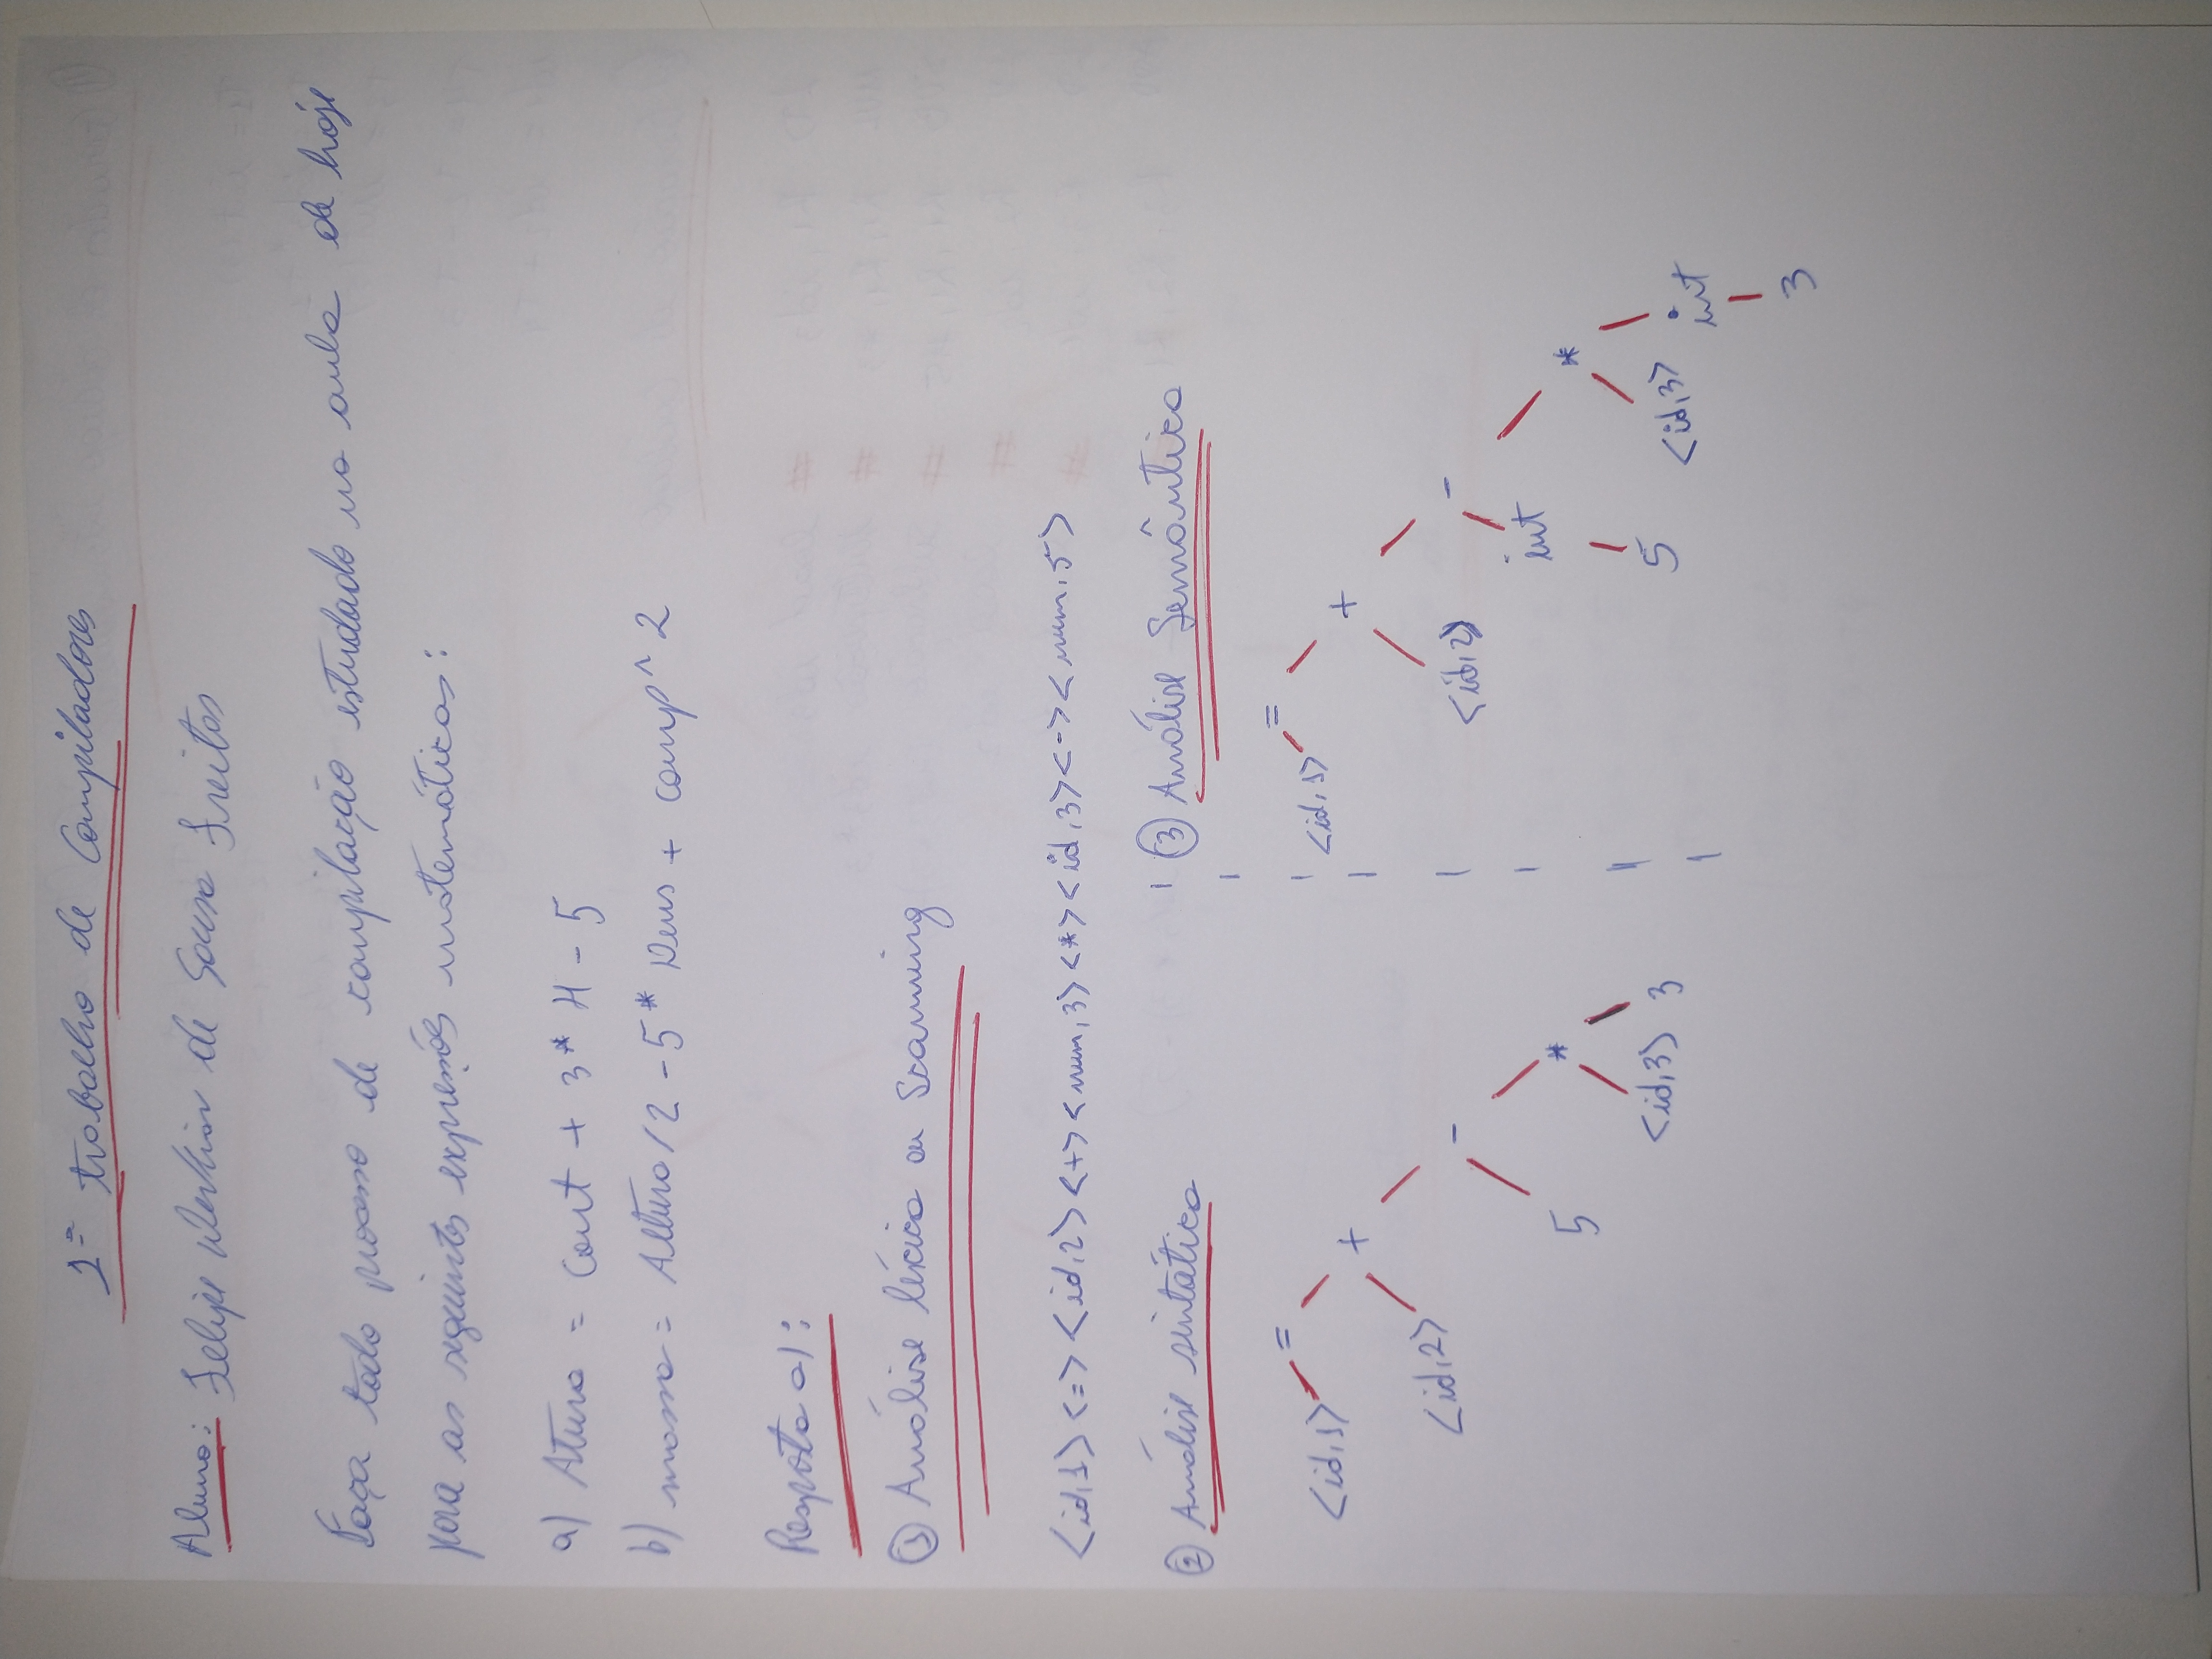 1º trabalho de Compiladores
Aluno: Felipe de Sousa Freitas
Faça todo processo de compilação estudado na aula de hoje
para as seguintes expressões matemáticas:
a) Atura = cont + 3 * H - 5
b) massa = Altura / 2 - 5 * Deus + comp ^ 2
Resposta a):
① Análise léxica ou Scanning
<id,1> <=> <id,2> <+> <num,3> <*> <id,3> <-> <num,5>
② Análise sintática
=
<id,1>
+
<id,2>
-
5
*
<id,3> 3
③ Análise Semântica
=
<id,1>
+
<id,2>
-
int
*
5
<id,3>
int
3